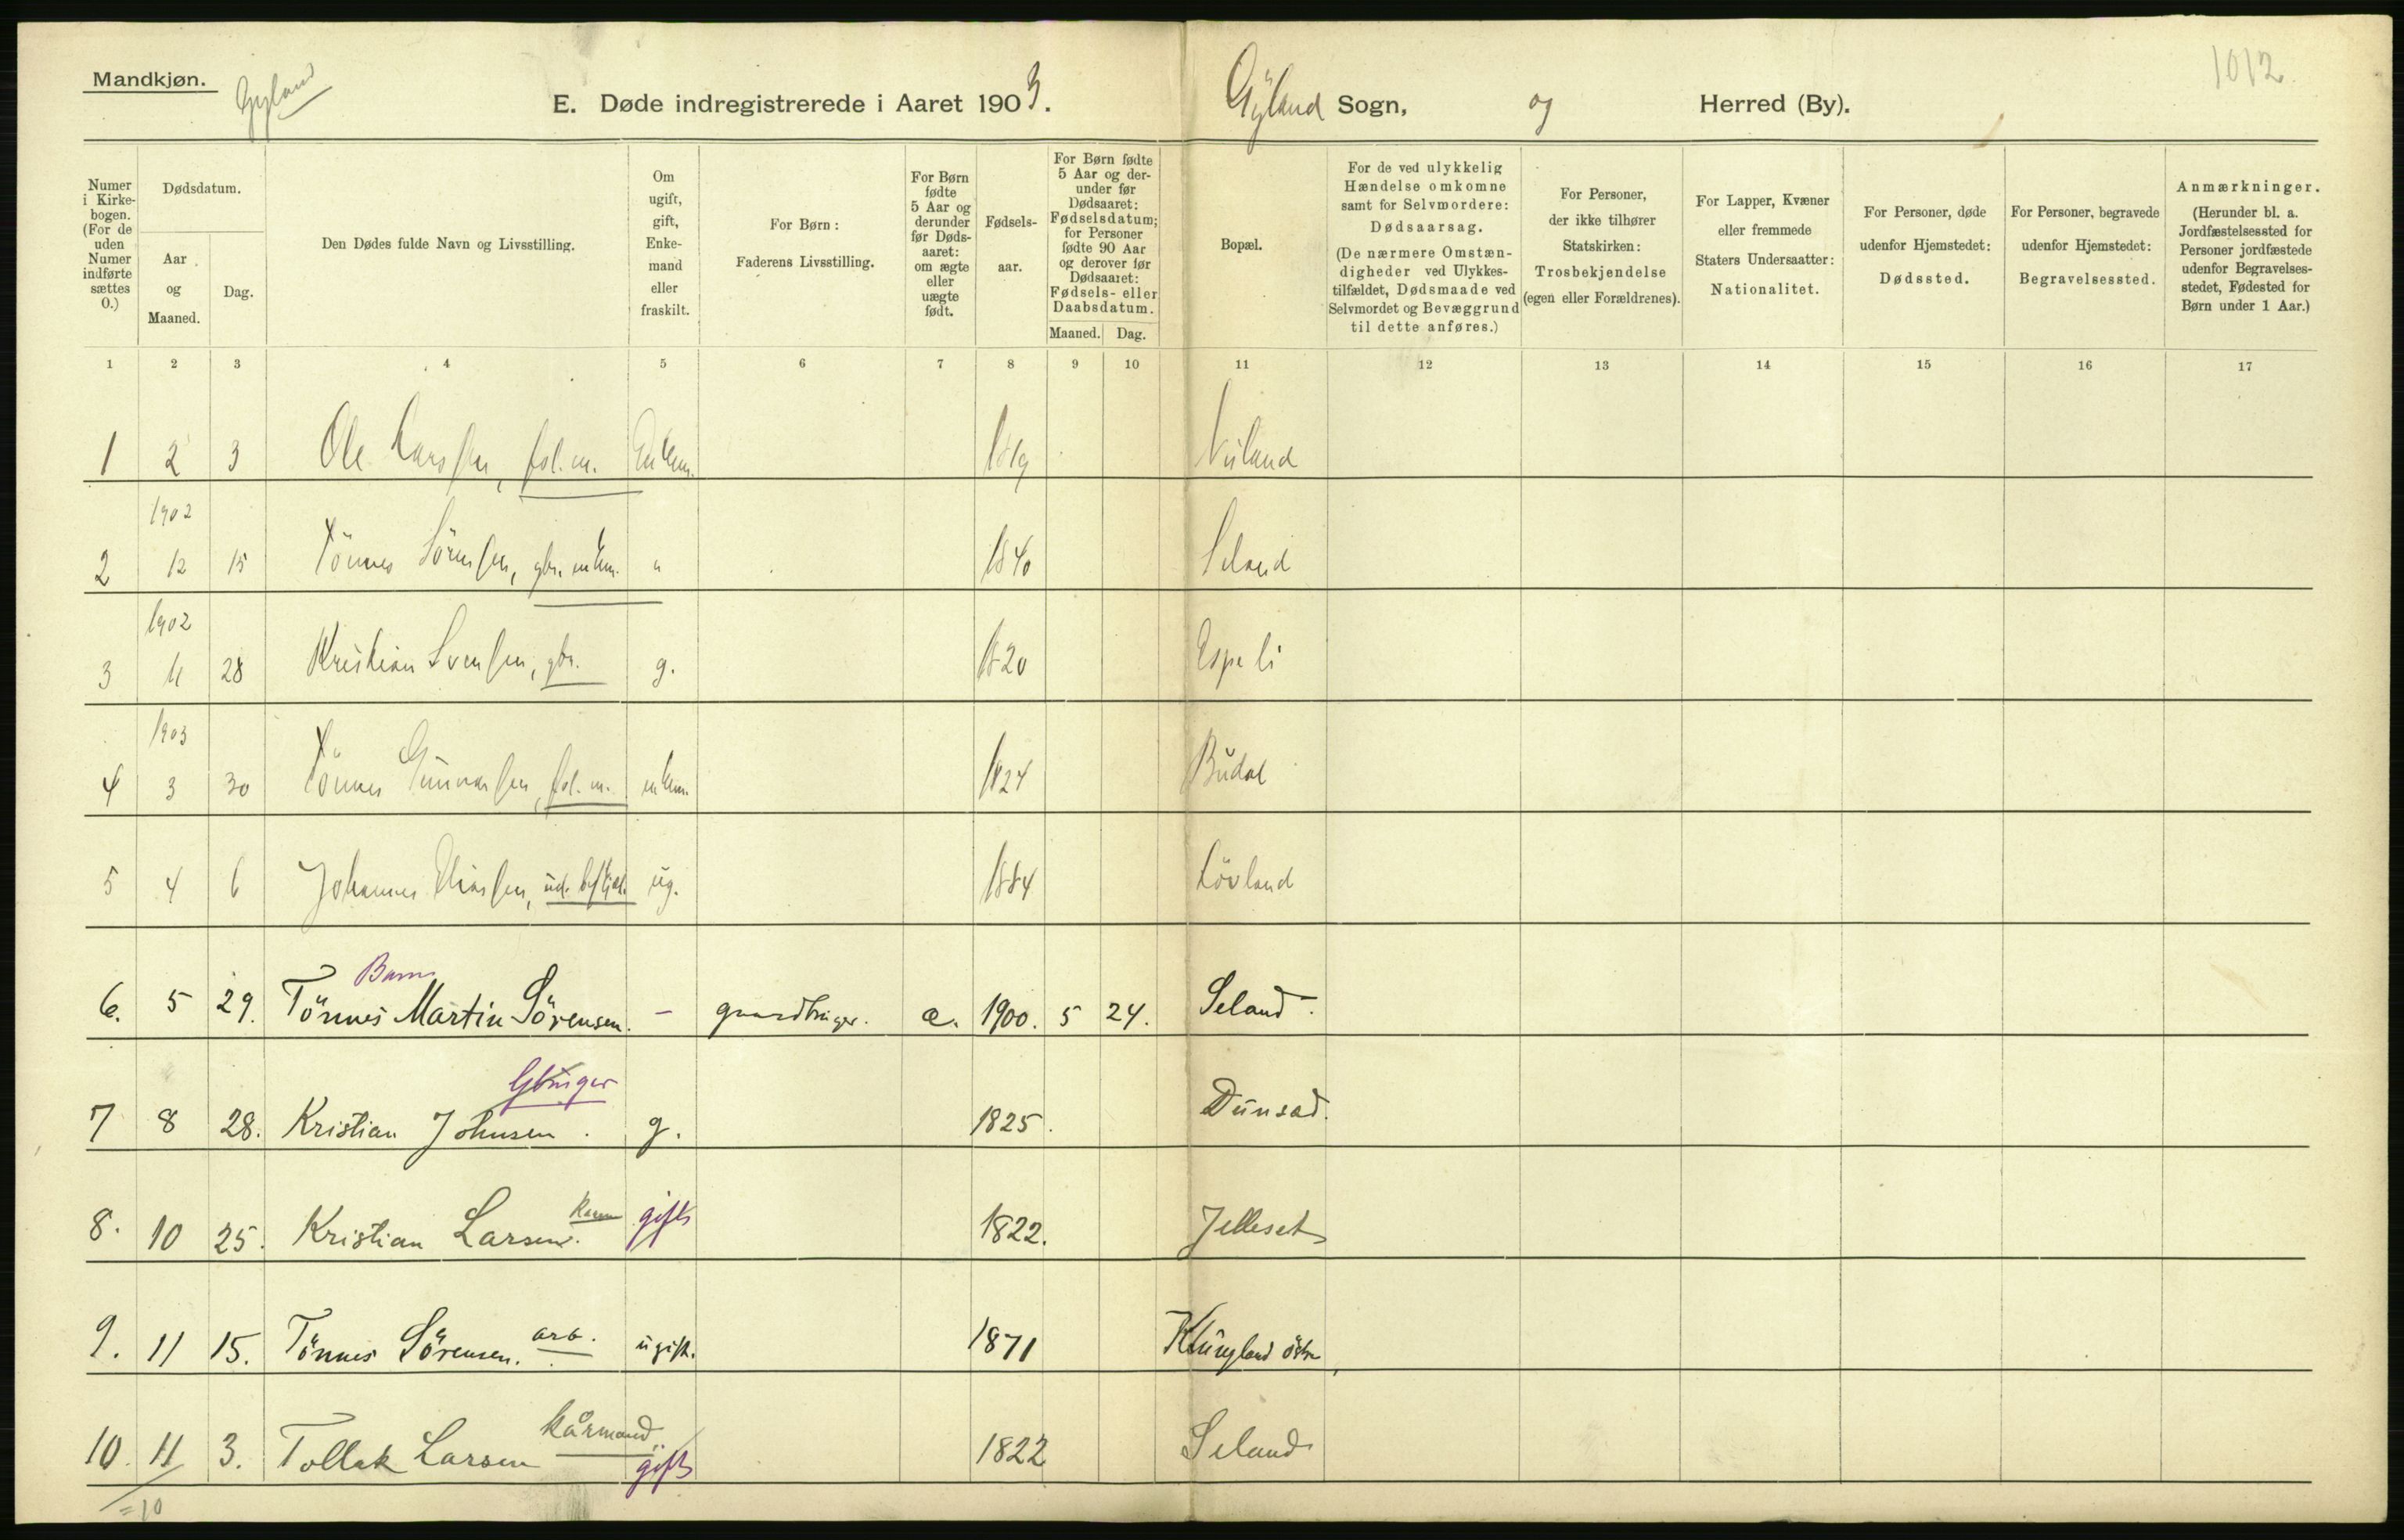 Mandkjøn.
Gyland
E. Døde indregistrerede i Aaret 1903.
Gyland Sogn, og Herred (By).
1012.
Numer i Kirkebogen. (For de uden Numer indførte sættes O.)
Dødsdatum.
Aar og Maaned.
Dag.
Den Dødes fulde Navn og Livsstilling.
Om ugift, gift, Enkemand eller fraskilt.
For Børn: Faderens Livsstilling.
For Børn fødte 5 Aar og derunder før Dødsaaret: om ægte eller uægte født.
Fødselsaar.
For Børn fødte 5 Aar og derunder før Dødsaaret: Fødselsdatum; for Personer fødte 90 Aar og derover før Dødsaaret: Fødsels- eller Daabsdatum.
Maaned. Dag.
Bopæl.
For de ved ulykkelig Hændelse omkomne samt for Selvmordere: Dødsaarsag. (De nærmere Omstændigheder ved Ulykkestilfældet, Dødsmaade ved Selvmordet og Bevæggrund til dette anføres.)
For Personer, der ikke tilhører Statskirken: Trosbekjendelse (egen eller Forældrenes).
For Lapper, Kvæner eller fremmede Staters Undersaatter: Nationalitet.
For Personer, døde udenfor Hjemstedet: Dødssted.
For Personer, begravede udenfor Hjemstedet: Begravelsessted.
Anmærkninger. (Herunder bl. a. Jordfæstelsessted for Personer jordfæstede udenfor Begravelsesstedet, Fødested for Børn under 1 Aar.)
1 2 3 4 5 6 7 8 9 10 11 12 13 14 15 16 17
1 2 3 Ole Larssen, fol.m. Enkem. 1819 Niland
1902
2 12 15 Tönnes Sörensen, gbr. enkm. " 1840 Seland
1902
3 11 28 Kristian Svensen, gbr. g. 1820 Espeli
1903
4 3 30 Tönnes Gunvarsen, fol.m. enkm. 1824 Bŭdal
5 4 6 Johannes Eliassen, ŭg. 1884 Lövland
Barn
6. 5 29. Tönnes Martin Sörensen. - gaardbruger. æ. 1900. 5 24. Seland.
Gbruger
7 8 28. Kristian Johnsen. g. 1825. Dŭnsad.
8. 10 25. Kristian Larsen. gift 1822. Jelleset
9. 11 15. Tönnes Sörensen. arb. ŭgift. 1871 Klŭngland östre
10. 11 3. Tollak Larsen kårmand gift 1822 Seland
=10